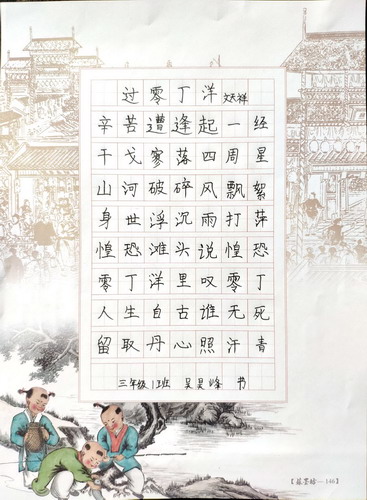 过零丁洋 文天祥
辛苦遭逢起一经
干戈寥落四周星
山河破碎风飘絮
身世浮沉雨打萍
惶恐滩头说惶恐
零丁洋里叹零丁
人生自古谁无死
留取丹心照汗青
三年级1班 吴昊峰 书
【蕴墨坊—146】